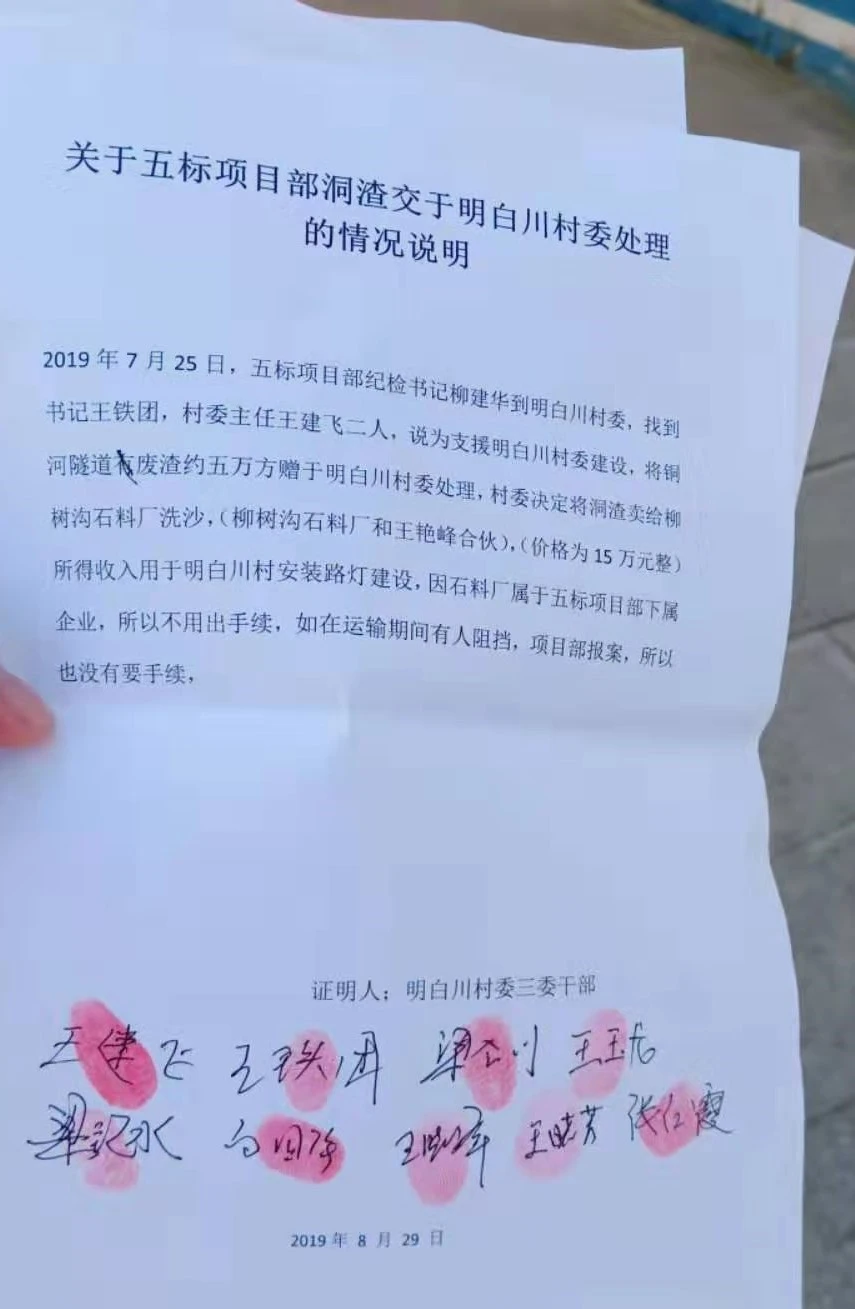 关于五标项目部洞渣交于明白川村委处理
的情况说明
2019年7月25日，五标项目部纪检书记柳建华到明白川村委，找到
书记王铁团，村委主任王建飞二人，说为支援明白川村委建设，将铜
河隧道废渣约五万方赠于明白川村委处理，村委决定将洞渣卖给柳
树沟石料厂洗沙，（柳树沟石料厂和王艳峰合伙），（价格为15万元整）
所得收入用于明白川村安装路灯建设，因石料厂属于五标项目部下属
企业，所以不用出手续，如在运输期间有人阻挡，项目部报案，所以
也没有要手续，
证明人：明白川村委三委干部
王建飞 王铁团 王玉龙
王晓芳 张红霞
2019年8月29日